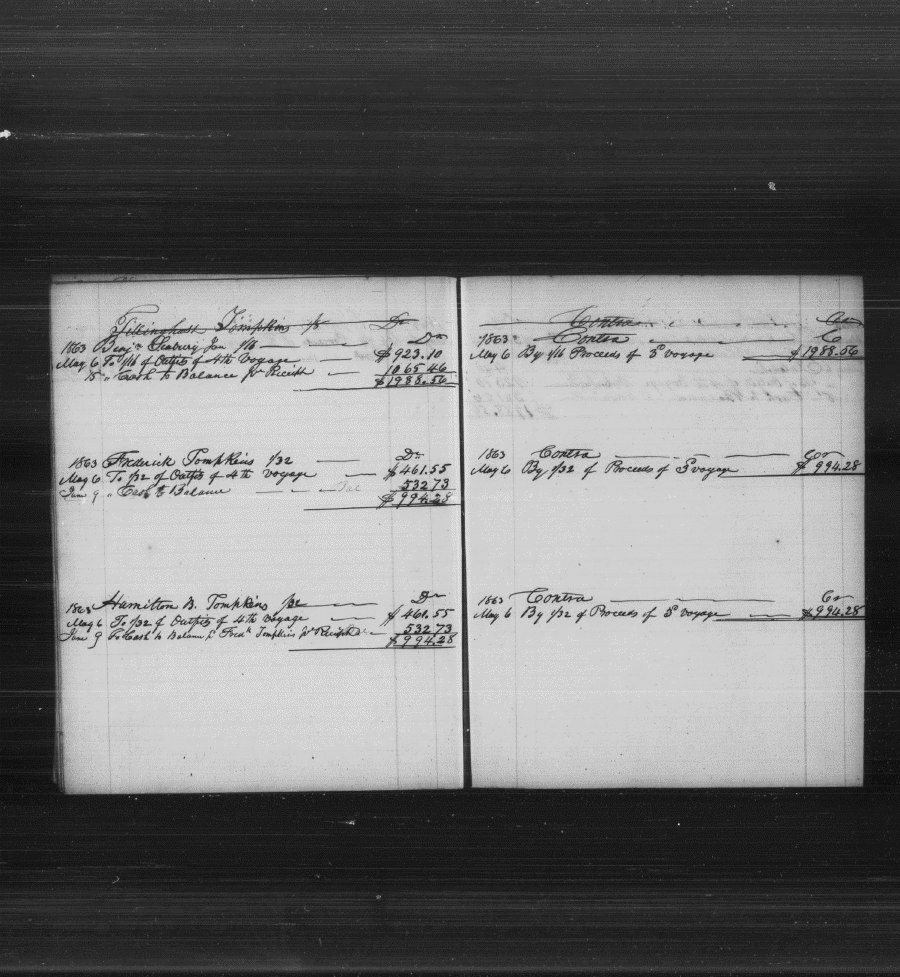 Tillinghast Tompkins 1/8 Dr
1863 Benjn Seabury Jun 1/16 Dr
May 6 To 1/16 of Outfits of 4th Voyage $923.10
15 " Cash to Balance pr Receipt 1065.46
$1988.56
1863 Frederick Tompkins 1/32 Dr
May 6 To 1/32 of Outfits of 4th Voyage $461.55
June 9 " Cash to Balance 532 73
$994.28
1863 Hamilton B. Tompkins 1/32 Dr
May 6 To 1/32 of Outfits of 4th Voyage $461.55
June 9 To Cash to Balance Fredk Tompkins pr Receipt 532 73
$994.28
Contra Cr
1863 Contra C
May 6 By 1/16 Proceeds of voyage $1988.56
1863 Contra Cr
May 6 By 1/32 of Proceeds of voyage $994.28
1863 Contra Cr
May 6 By 1/32 of Proceeds of voyage $994.28